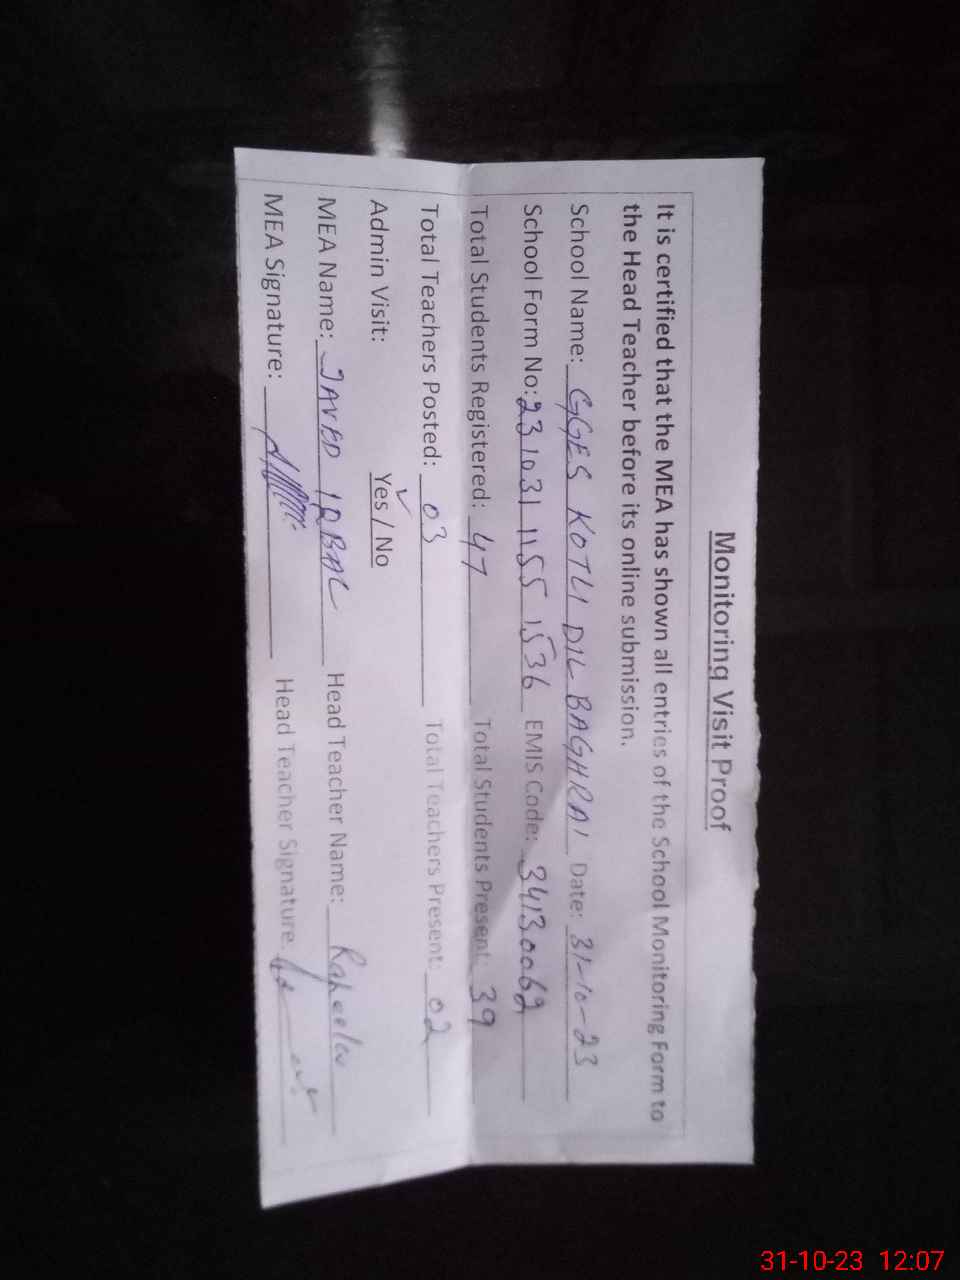 Monitoring Visit Proof
It is certified that the MEA has shown all entries of the School Monitoring Form to
the Head Teacher before its online submission.
School Name: GGES KOTLI DIL BAGHRAI Date: 31-10-23
School Form No: 231031 1155 1536 EMIS Code: 34130062
Total Students Registered: 47 Total Students Present: 39
Total Teachers Posted: 03 Total Teachers Present: 02
Admin Visit: Yes / No
MEA Name: JAVED IQBAL Head Teacher Name: Raheela
MEA Signature: Head Teacher Signature:
31-10-23 12:07